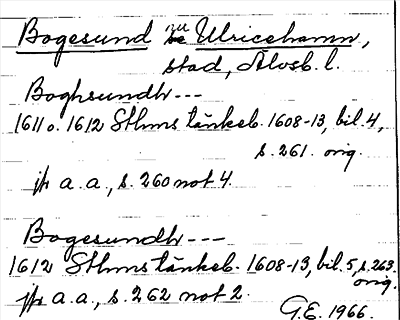 Bogesund nu Ulricehamn,
stad, Älvsb. l.
Boghsundh ---
1611 o. 1612 Sthms tänkeb. 1608-13, bil. 4,
s. 261. orig.
jfr a. a., s. 260 not 4.
Bogesundh ---
1612 Sthms tänkeb. 1608-13, bil. 5, s. 263.
orig.
jfr a. a., s. 262 not 2.
G.E. 1966.